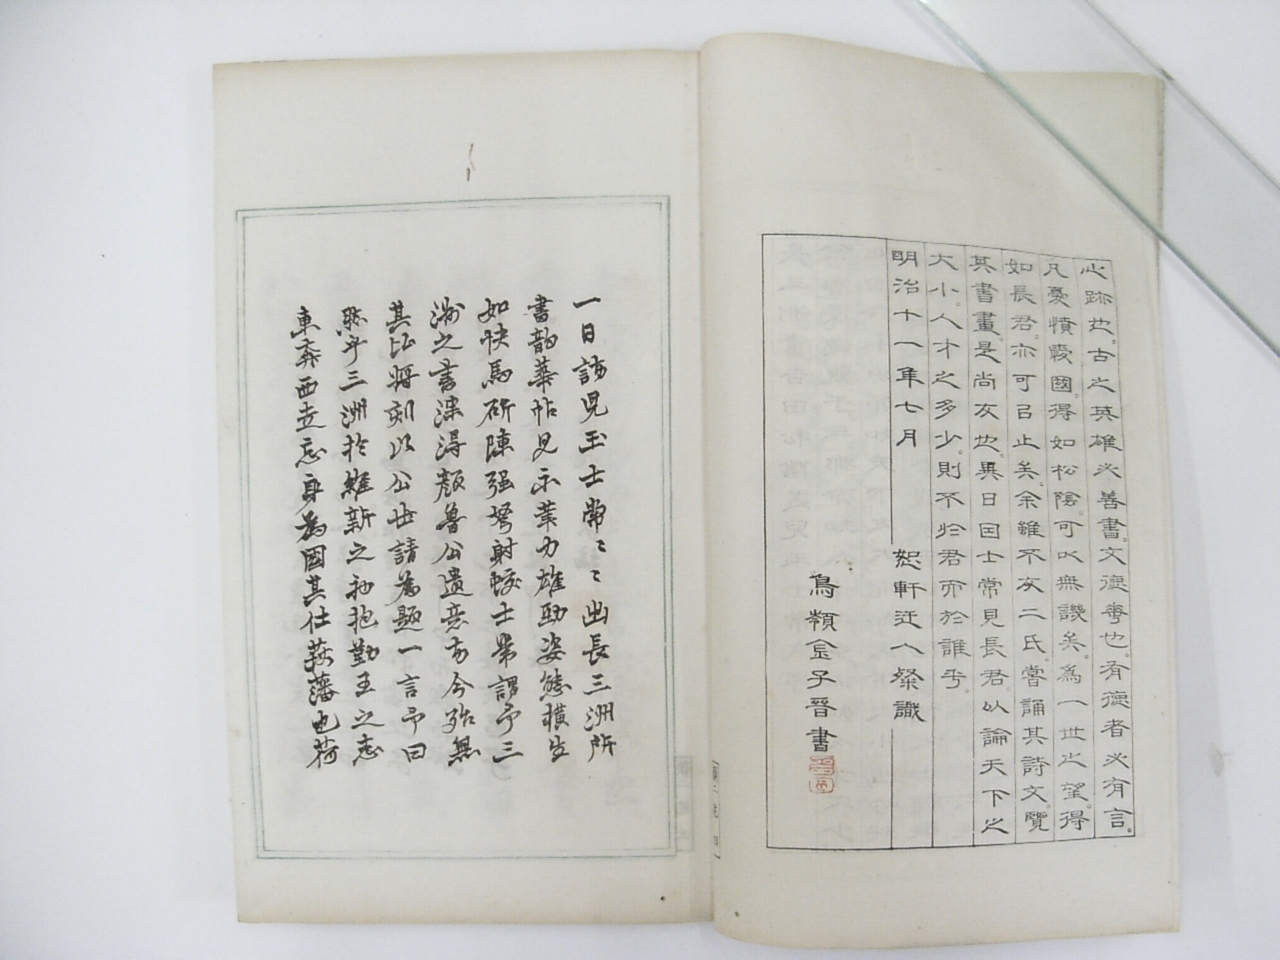 心跡也。古之英雄必善書。文德粤也。有德者必有言。
凡憂憤襃國。得如松陰。可以無譏矣。為一世之望。得
如長君。亦可已止矣。余雖不友二氏。嘗誦其詩文。覽
其書畫。是尚友也。異日因士常見長君。以論天下之
大小。人才之多少。則不於君而於誰乎。
明治十一年七月　恕軒迂人粲識
鳥嶺金子晉書
一日訪児玉士常々々出長三洲所
書韵華帖見示筆力雄勁姿態横生
如快馬斫陳强弩射蛟士常謂予三
洲之書深得顔魯公遺意方今殆無
其比将刻以公世請為題一言予曰
於乎三洲於維新之初抱勤王之志
東奔西走忘身為國其仕萩藩也荷